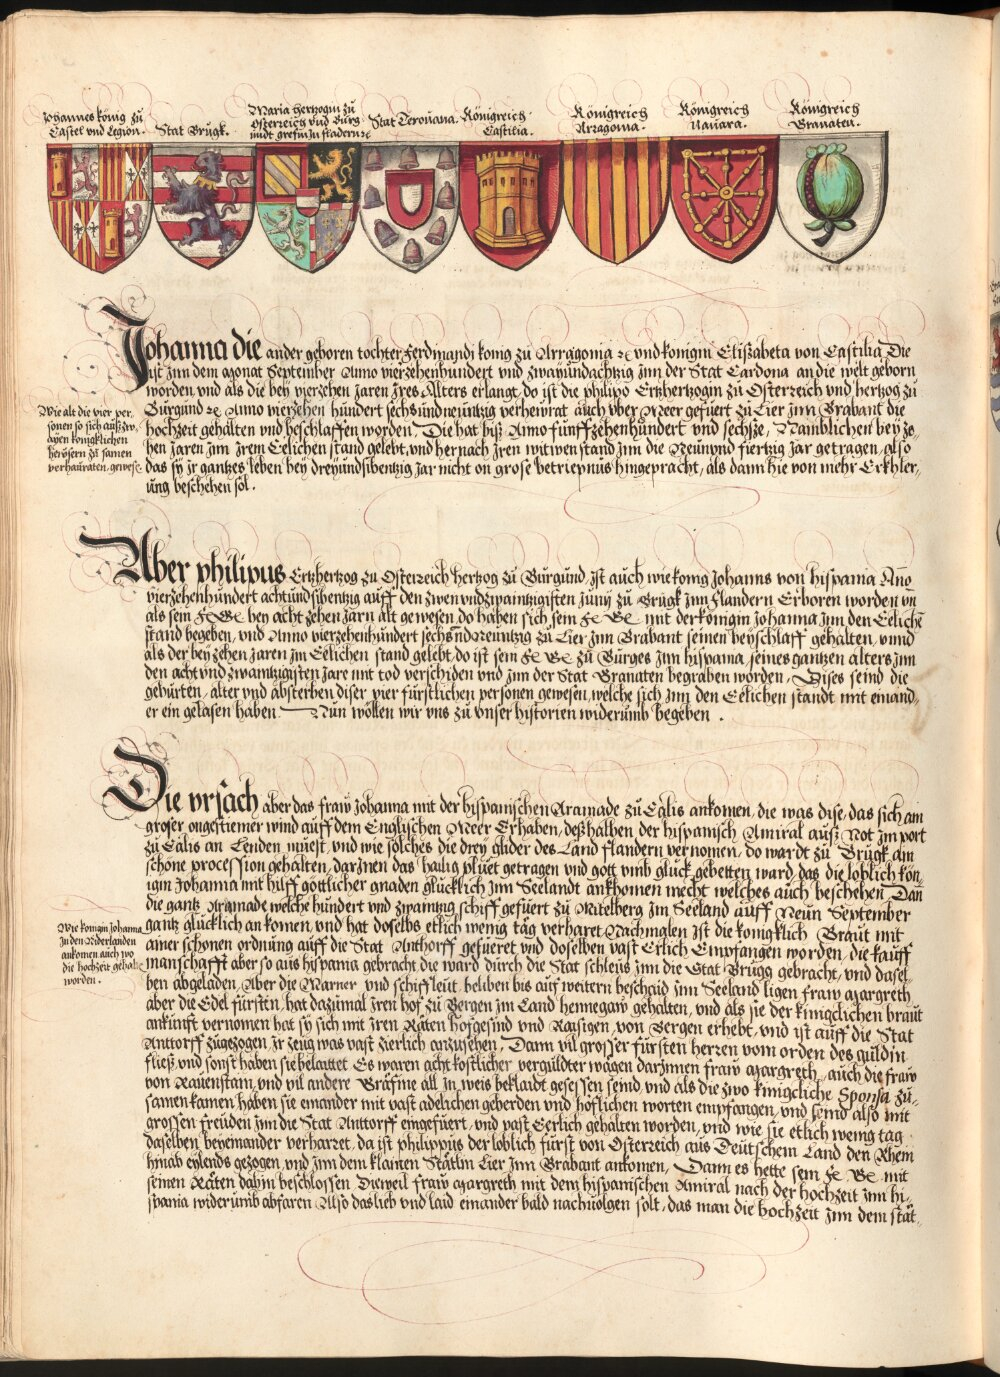 Johannes König zu
Castel vnd Legion.
Stat Brügk.
Maria hertzogin zu
Osterreich vnd Burg
undt grefin zu fladern ꝛc
Stat Terouana.
Königreich
Castilia.
Königreich
Arragonia.
Königreich
Nauara.
Königreich
Granaten.
Johanna die ander geboren tochter Ferdinandi konig zu Arragonia ꝛc vnd konigin Elißabeta von Castilia Die
ist jnn dem Monat September Anno vierzehenhundert vnd zwayundachtzig jnn der Stat Cardona an die welt geborn
worden, vnd als die bey vierzehen jaren jres Alters erlangt, do ist die philipo Ertzhertzogin zu Osterreich vnd hertzog zu
Burgund ꝛc Anno vierzehen hundert sechsundneuntzig verheirat auch vber Meer gefuert zu Lier jnn Brabant die
hochzeit gehalten vnd beschlaffen worden, Die hat biß Anno funffzehenhundert vnd sechße, Namblichen bey ze-
hen jaren jnn jrem Eelichen stand gelebt, vnd hernach jren witwen stand jnn die Neunvnd fiertzig jar getragen, also
das sy jr gantzes leben bey dreyundsibentzig jar nicht on grose betriepnus hingepracht, als dann hie von mehr Erkhler-
ung beschehen sol.
Wie alt die vier per-
sonen so sich auß zw-
ayen konigklichen
heysern zu samen
verhauraten, gewese.
Aber philipus Ertzhertzog zu Osterreich hertzog zu Burgund, Ist auch wie konig Johanns von hispania Ano
vierzehenhundert achtundsibentzig auff den zwen vndzwaintzigisten Juny zu Brugk jnn flandern Erboren worden vn
als sein F. G. bey acht zehen jarn alt gewesen, do haben sich sein F. G. mit der königin Johanna jnn den Eeliche
stand begeben, vnd Anno vierzehenhundert sechsundneuntzig zu Lier jnn Brabant seinen beyschlaff gehalten, vnnd
als der bey zehen jaren jm Eelichen stand gelebt, do ist sein F. G. zu Burges jnn hispania, seines gantzen alters jnn
den acht vnd zwaintzigisten jare mit tod verschiden vnd jnn der Stat Granaten begraben worden, Dises seind die
geburten, alter vnd absterben diser vier fürstlichen personen gewesen, welche sich jnn den Eelichen standt mit einand-
er ein gelasen haben. Nun wollen wir vns zu vnser historien widerumb begeben.
Die vrsach aber das fraw Johanna mit der hispanischen Aramade zu Calis ankomen, die was dise, das sich am
groser ongestiemer wind auff dem Englischen Meer Erhaben, deßhalben der hispanisch Amiral auß Not jm port
zu Calis an Lenden müest, vnd wie solches die drey glider des Land flandern vernomen, do wardt zu Brugk am
schöne procession gehalten, darjnen das hailig pluet getragen vnd gott vmb gluck gebetten ward, das die loblich kön-
igin Johanna mit hilff gottlicher gnaden glucklich jnn Seelandt ankhomen mecht welches auch beschehen Dan
die gantz Aramade welche hundert vnd zwaintzig schiff gefuert zu Mitelberg jm Seeland auff Neun September
gantz glucklich an komen, vnd hat doselbs etlich wenig tag verharet Nachmalen Ist die konigklich Braut mit
ainer schonen ordnung auff die Stat Anthorff gefueret vnd doselben vast Erlich Empfangen worden, die kauff
manschafft aber so aus hispania gebracht, die ward durch die Stat schleus jnn die Stat Brugg gebracht, vnd dasel-
ben abgeladen, Aber die Marner vnd schiffleut, beliben bis auf weitern beschaid jnn Seeland ligen fraw Margreth
aber die Edel fürstin, hat dazumal jren hof zu Bergen jm Land hennegaw gehalten, vnd als sie der kinigclichen braut
ankunft vernomen hat sy sich mit jren Räten hofgesind vnd Raysigen, von Bergen erhebt, vnd ist auff die Stat
Anttorff zugezogen, jr zeug was vast zierlich anzusehen, Dann vil grosser fürsten herren vom orden des guldin
fließ, vnd sonst haben sie belaittet Es waren acht kostlicher verguldter wägen darjnnen fraw Margreth, auch die fraw
von Rauenstain, vnd vil andere Gräfine all jn weis beklaidt gesessen seind, vnd als die zwo kinigcliche Sponsa zu-
samen kamen haben sie einander mit vast adelichen geberden vnd höflichen worten empfangen, vnd seind also mit
grossen freuden jnn die Stat Anttorff eingefüert, vnd vast Eerlich gehalten worden, vnd wie sie etlich wenig tag
daselben beyeinander verharret, da ist philippus der loblich fürst von Osterreich aus Deutschem Land den Rhein
hinab eylends gezogen, vnd jnn dem klainen Stätlin Lier jnn Brabant ankomen, Dann es hette sein F. G. mit
seinen Räten dahin beschlossen Dieweil fraw Margreth mit dem hispanischen Amiral nach der hochzeit jnn hi-
spania widerumb abfaren Also das lieb vnd laid einander bald nachuolgen solt, das man die hochzeit jnn dem stät-
Wie konigin Johanna
jn den Niderlanden
ankomen auch wo
die hochzeit gehalte
worden.